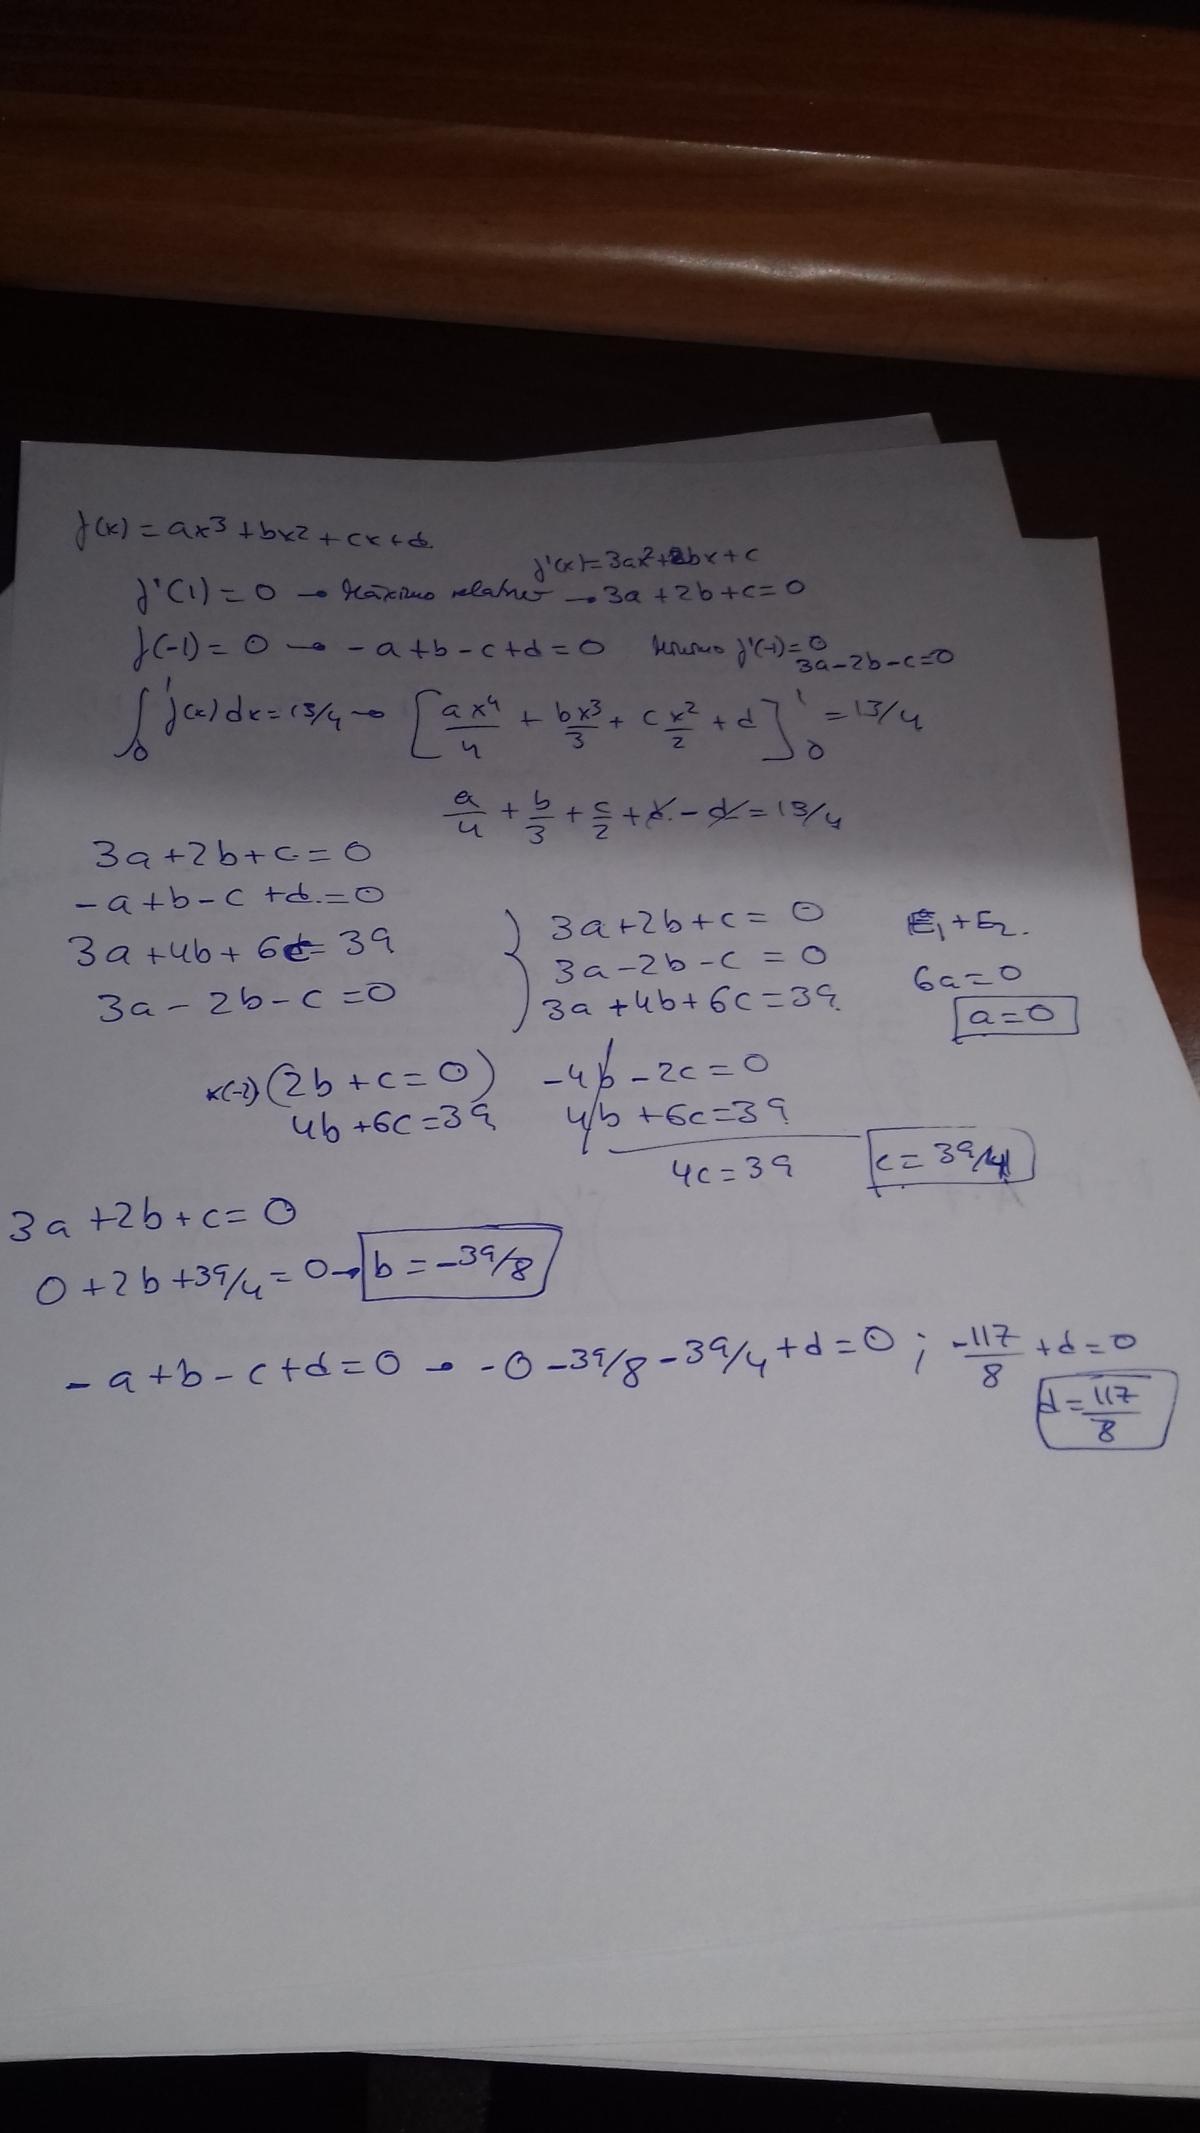 f(x) = ax³ + bx² + cx + d
f'(x) = 3ax² + 2bx + c
f'(1) = 0 → Máximo relativo → 3a + 2b + c = 0
f(-1) = 0 → -a + b - c + d = 0 Mínimo f'(-1) = 0
3a - 2b - c = 0
∫₀¹ f(x) dx = 13/4 → [ax⁴/4 + bx³/3 + cx²/2 + d]₀¹ = 13/4
a/4 + b/3 + c/2 + d - d = 13/4
3a + 2b + c = 0
-a + b - c + d = 0
3a + 4b + 6c = 39
3a - 2b - c = 0
3a + 2b + c = 0 E₁ + E₂
3a - 2b - c = 0 6a = 0
3a + 4b + 6c = 39 a = 0
x(-2) (2b + c = 0) -4b - 2c = 0
4b + 6c = 39 4b + 6c = 39
4c = 39 c = 39/4
3a + 2b + c = 0
0 + 2b + 39/4 = 0 → b = -39/8
-a + b - c + d = 0 → -0 - 39/8 - 39/4 + d = 0 ; -117/8 + d = 0
d = 117/8